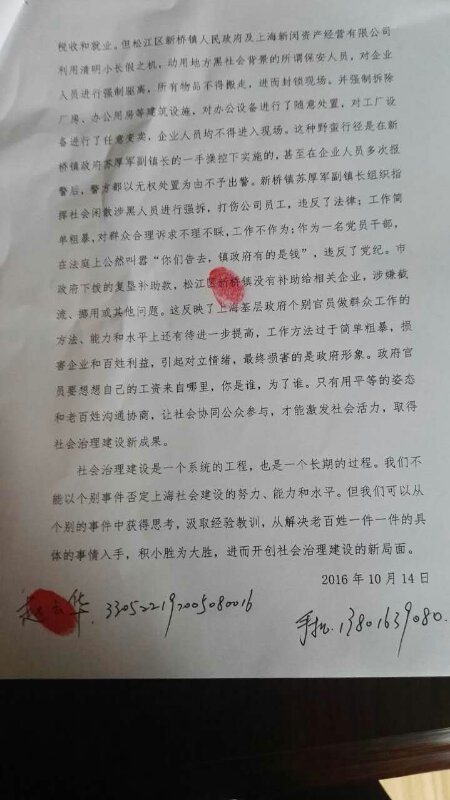 税收和就业。但松江区新桥镇人民政府及上海新闵资产经营有限公司
利用清明小长假之机，动用地方黑社会背景的所谓保安人员，对企业
人员进行强制驱离，所有物品不得搬走，进而封锁现场。并强制拆除
厂房、办公用房等建筑设施，对办公设备进行了随意处置，对工厂设
备进行了任意变卖，企业人员均不得进入现场。这种野蛮行径是在新
桥镇政府苏厚军副镇长的一手操控下实施的，甚至在企业人员多次报
警后，警方都以无权处置为由不予出警。新桥镇苏厚军副镇长组织指
挥社会闲散涉黑人员进行强拆，打伤公司员工，违反了法律；工作简
单粗暴，对群众合理诉求不理不睬，工作不作为；作为一名党员干部，
在法庭上公然叫嚣“你们告去，镇政府有的是钱”，违反了党纪。市
政府下拨的复垦补助款，松江区新桥镇没有补助给相关企业，涉嫌截
流、挪用或其他问题。这反映了上海基层政府个别官员做群众工作的
方法、能力和水平上还有待进一步提高，工作方法过于简单粗暴，损
害企业和百姓利益，引起对立情绪，最终损害的是政府形象。政府官
员要想想自己的工资来自哪里，你是谁，为了谁。只有用平等的姿态
和老百姓沟通协商，让社会协同公众参与，才能激发社会活力，取得
社会治理建设新成果。
社会治理建设是一个系统的工程，也是一个长期的过程。我们不
能以个别事件否定上海社会建设的努力、能力和水平。但我们可以从
个别的事件中获得思考，汲取经验教训，从解决老百姓一件一件的具
体的事情入手，积小胜为大胜，进而开创社会治理建设的新局面。
2016 年 10 月 14 日
华 330522197005080016
手机 13801639080